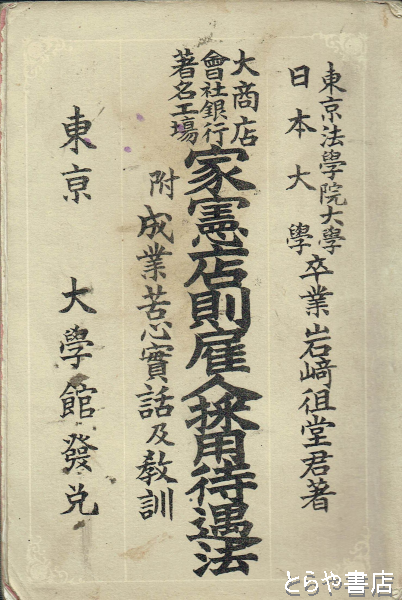 東京法學院大學
日本大學
卒業岩﨑徂堂君著
大商店
會社銀行
著名工塲
家憲店則雇人採用待遇法
附成業苦心實話及教訓
東京 大學館發兌
とらや書店